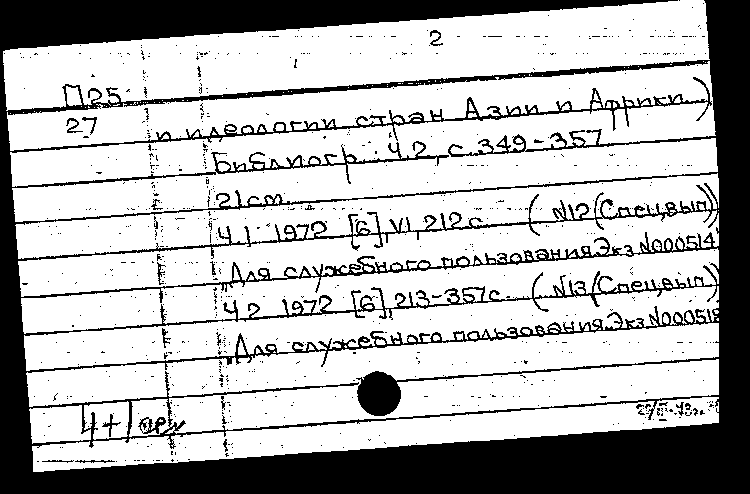 2
П25
27 и идеологии стран Азии и Африки)
Библиогр.: ч.2, с.349-357
21см.
Ч.1 1972 [6], VI, 212 с. (N12 (Спец.вып))
„Для служебного пользования. Экз N000514
Ч.2 1972 [6], 213-357с. (N13 (Спец.вып.))
„Для служебного пользования. Экз N000518
4+1